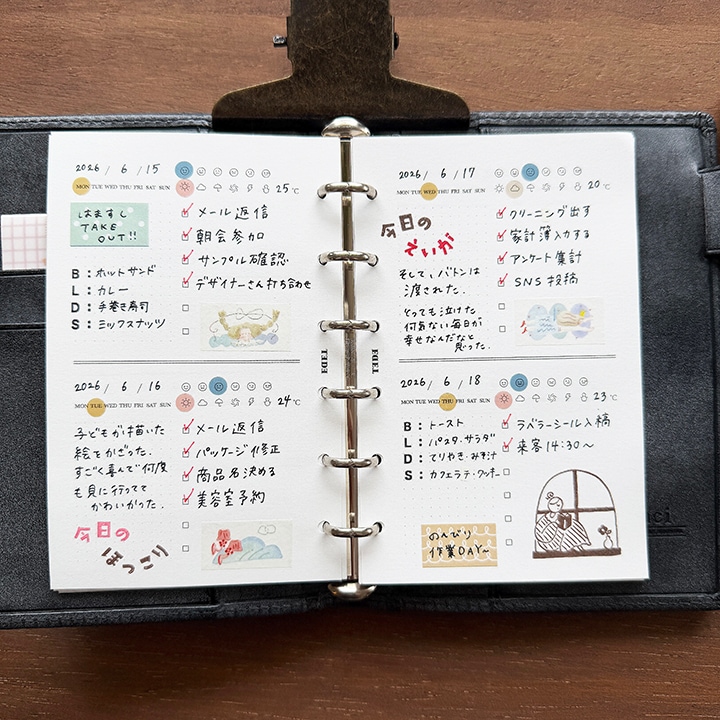 2026 / 6 / 15
MON TUE WED THU FRI SAT SUN
25 ℃
はますし
TAKE
OUT!!
B：ホットサンド
L：カレー
D：手巻き寿司
S：ミックスナッツ
メール返信
朝会参加
サンプル確認
デザイナーさん打ち合わせ
2026 / 6 / 16
MON TUE WED THU FRI SAT SUN
24 ℃
子どもが描いた
絵をかざった。
すごく喜んで何度
も見に行ってて
かわいかった。
今日の
ほっこり
メール返信
パッケージ修正
商品名決める
美容室予約
TEDE
TEDE
2026 / 6 / 17
MON TUE WED THU FRI SAT SUN
20 ℃
今日の
えいが
そして、バトンは
渡された。
とっても泣けた
何気ない毎日が
幸せなんだなと
思った。
クリーニング出す
家計簿入力する
アンケート集計
SNS投稿
2026 / 6 / 18
MON TUE WED THU FRI SAT SUN
23 ℃
B：トースト
L：パスタ・サラダ
D：てりやき・みそ汁
S：カフェラテ・クッキー
のんびり
作業DAY〜
ラベラーシール入稿
来客 14:30〜